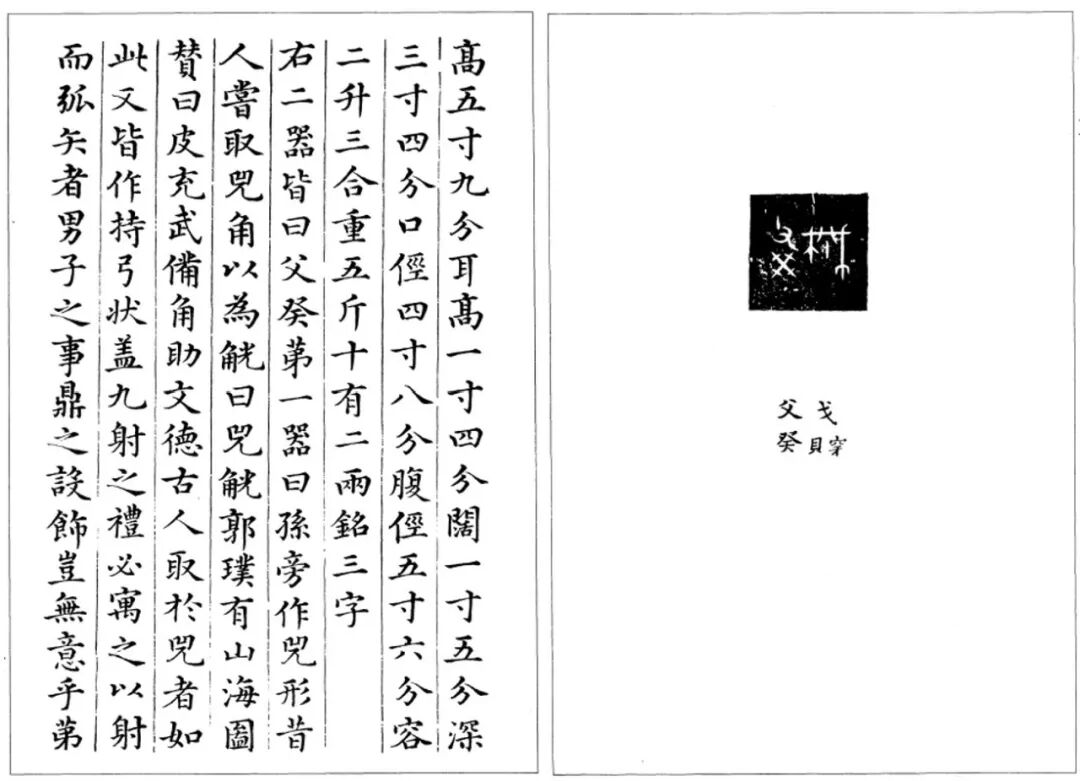 戈穿貝
父癸
髙五寸九分耳髙一寸四分闊一寸五分深
三寸四分口徑四寸八分腹徑五寸六分容
二升三合重五斤十有二兩銘三字
右二器皆曰父癸第一器曰孫旁作兕形昔
人嘗取兕角以為觥曰兕觥郭璞有山海圖
賛曰皮充武備角助文德古人取於兕者如
此又皆作持弓状盖九射之禮必寓之以射
而弧矢者男子之事鼎之設飾豈無意乎第